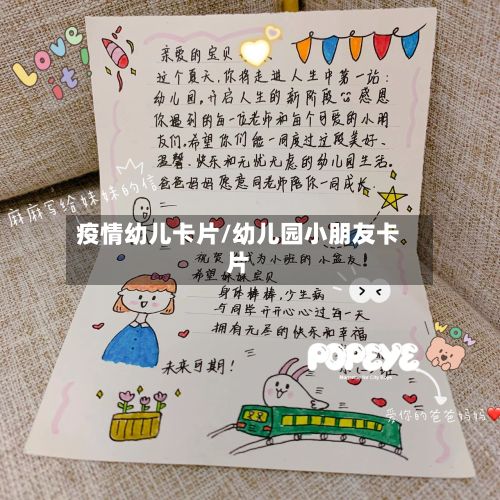 Love
it!
亲爱的宝贝
这个夏天,你将走进人生中第一站:
幼儿园,开启人生的新阶段感恩
你遇到的每一位老师和每个可爱的小朋
友们。希望你们能一同度过这段美好、
温馨、快乐和无忧无虑的幼儿园生活。
爸爸妈妈愿意同老师陪你一同成长
麻麻写给妹妹的信
疫情幼儿卡片/幼儿园小朋友卡
片
祝贺 成为小班的小盆友!
希望妹妹宝贝
身体棒棒,少生病
与同学开开心心过每一天
拥有无尽的快乐和幸福
未来可期!
POPEYE
WOW
爱你的爸爸妈妈